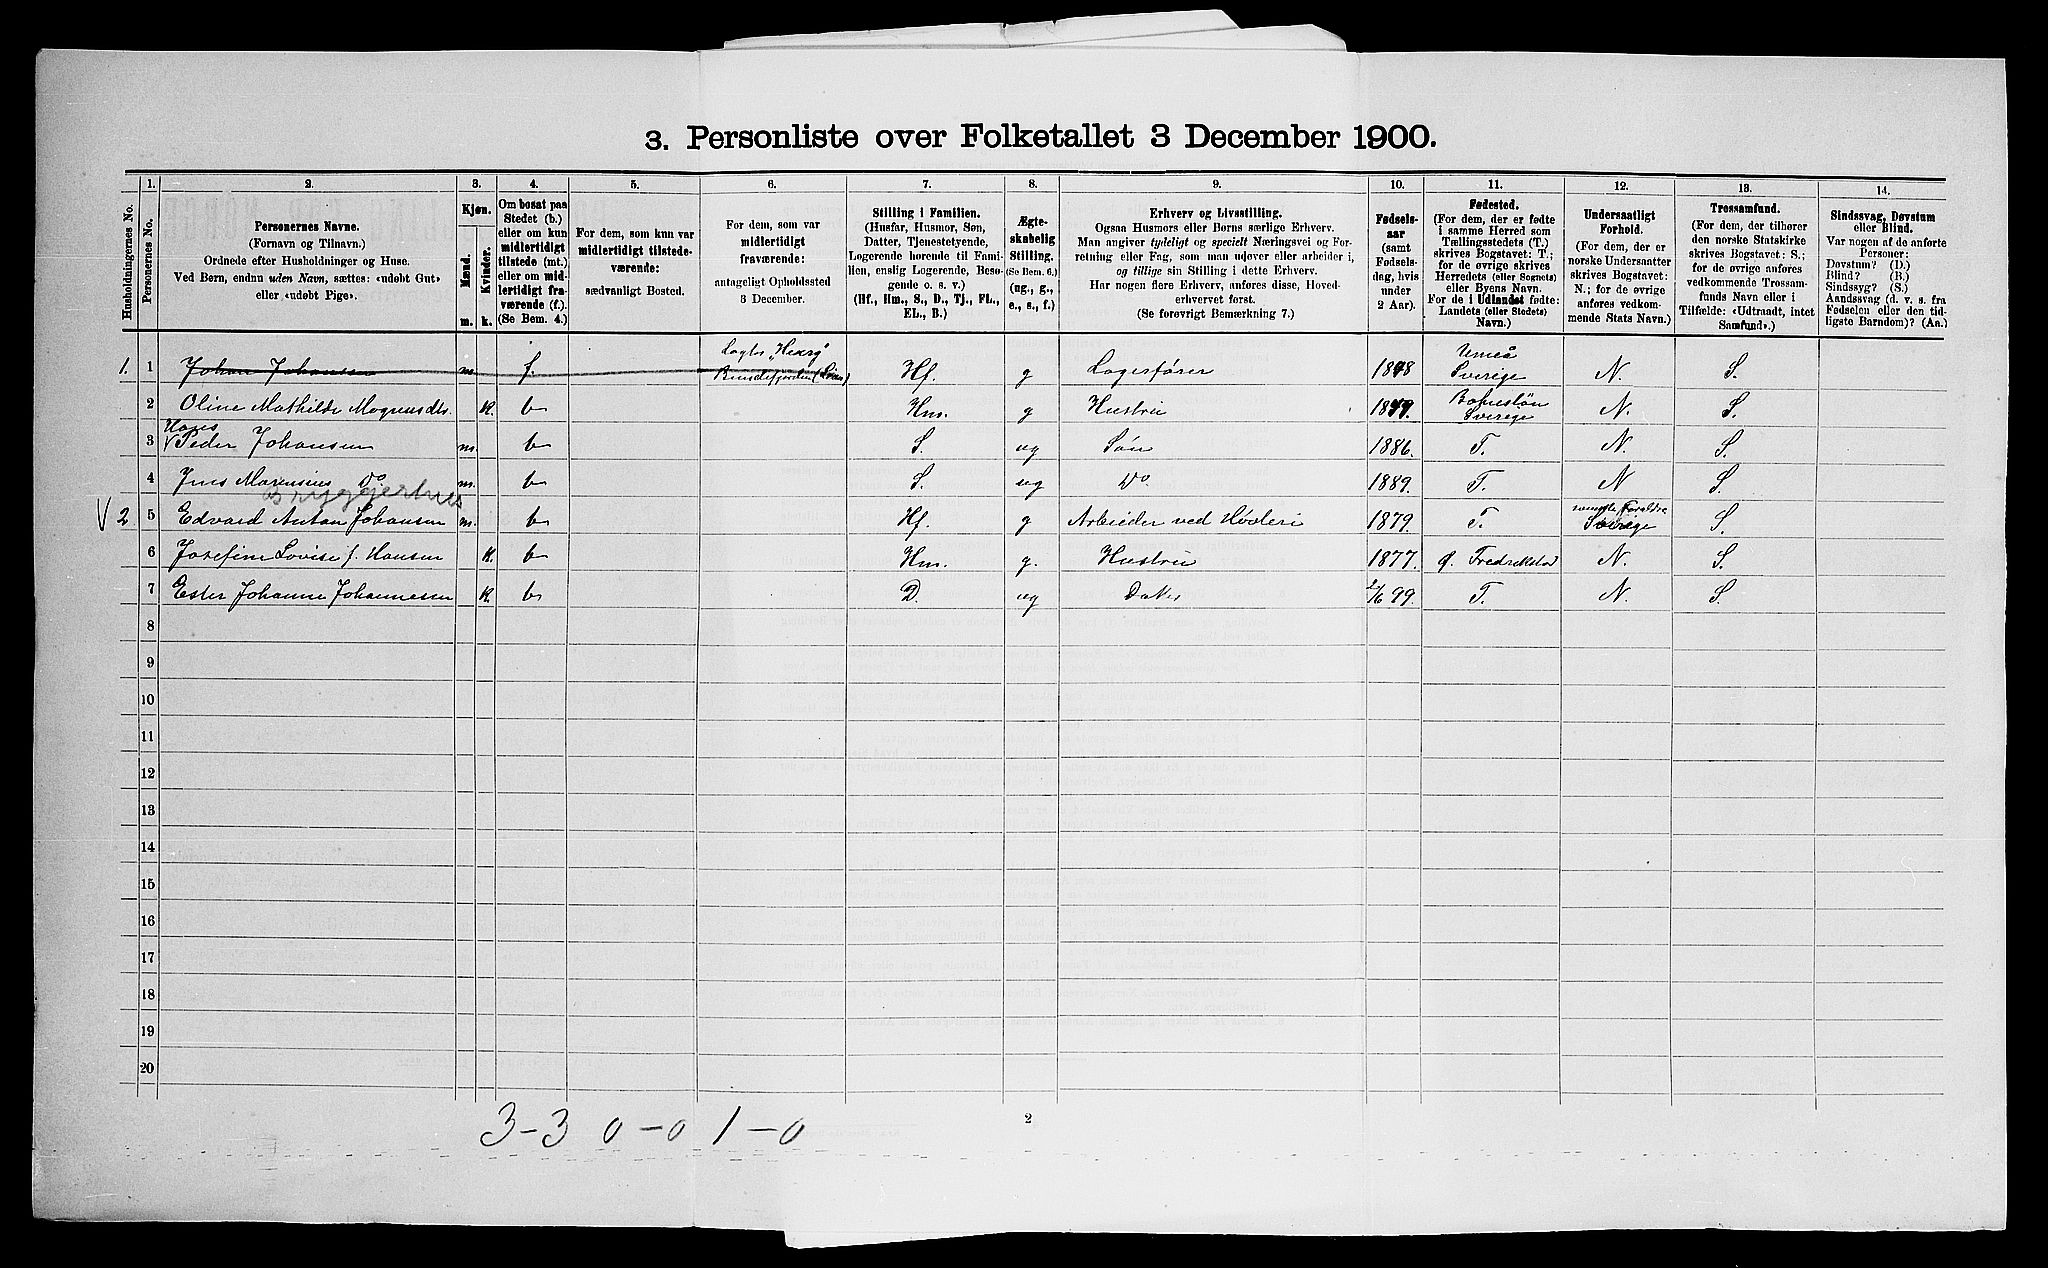 3. Personliste over Folketallet 3 December 1900.
Husholdningernes No.
1.
Personernes No.
2.
Personernes Navne.
(Fornavn og Tilnavn.)
Ordnede efter Husholdninger og Huse.
Ved Børn, endnu uden Navn, sættes: «udøbt Gut»
eller «udøbt Pige».
3.
Kjøn.
Mænd.
Kvinder.
m. k.
4.
Om bosat paa
Stedet (b.)
eller om kun
midlertidigt
tilstede (mt.)
eller om mid-
lertidigt fra-
værende (f.).
(Se Bem. 4.)
5.
For dem, som kun var
midlertidigt tilstede-
værende:
sædvanligt Bosted.
6.
For dem, som var
midlertidigt
fraværende:
antageligt Opholdssted
3 December.
7.
Stilling i Familien.
(Husfar, Husmor, Søn,
Datter, Tjenestetyende,
Logerende hørende til Fami-
lien, enslig Logerende, Besø-
gende o. s. v.)
(Hf., Hm., S., D., Tj., FL.,
EL., B.)
8.
Ægte-
skabelig
Stilling.
(Se Bem. 6.)
(ug., g.,
e., s., f.)
9.
Erhverv og Livsstilling.
Ogsaa Husmors eller Børns særlige Erhverv.
Man angiver tydeligt og specielt Næringsvei og For-
retning eller Fag, som man udøver eller arbeider i,
og tillige sin Stilling i dette Erhverv.
Har nogen flere Erhverv, anføres disse, Hoved-
erhvervet først.
(Se forøvrigt Bemærkning 7.)
10.
Fødsels-
aar
(samt
Fødsels-
dag, hvis
under
2 Aar).
11.
Fødested.
(For dem, der er fødte
i samme Herred som
Tællingsstedets (T.)
skrives Bogstavet: T.;
for de øvrige skrives
Herredets (eller Sognets)
eller Byens Navn.
For de i Udlandet fødte:
Landets (eller Stedets)
Navn.)
12.
Undersaatligt
Forhold.
(For dem, der er
norske Undersaatter
skrives Bogstavet:
N.; for de øvrige
anføres vedkom-
mende Stats Navn.)
13.
Trossamfund.
(For dem, der tilhører
den norske Statskirke
skrives Bogstavet: S.;
for de øvrige anføres
vedkommende Trossam-
funds Navn eller i
Tilfælde: «Udtraadt, intet
Samfund».)
14.
Sindssvag, Døvstum
eller Blind.
Var nogen af de anførte
Personer:
Døvstum? (D.)
Blind? (B.)
Sindssyg? (S.)
Aandssvag (d. v. s. fra
Fødselen eller den tid-
ligste Barndom)? (Aa.)
1. 1 Johan Johansen m. f. Hf. g 18 8 Umeå Sverige N. S.
2 Oline Mathilde Magnusdtr. k. b Hm. g Hustru Sverige N. S.
3 Hans Peder Johansen m. b S. ug Søn 1886. T. N. S.
4 Jens Marensius Do m. b S. ug Do. 1889. T. N S.
Bryggerhus
V 2 5 Edvard Anton Johansen m. b Hf. g Arbeider ved Høvleri 1879. T. Sverige S.
6 Josefine Lovise f. Hansen k. b Hm. g. Hustru 1877. Ø. Fredrikstad N. S.
7 Ester Johanne Johannesen k. b D. ug Datter 2/6 99. T. N. S.
8
9
10
11
12
13
14
15
16
17
18
19
20
3-3 0-0 1-0
2